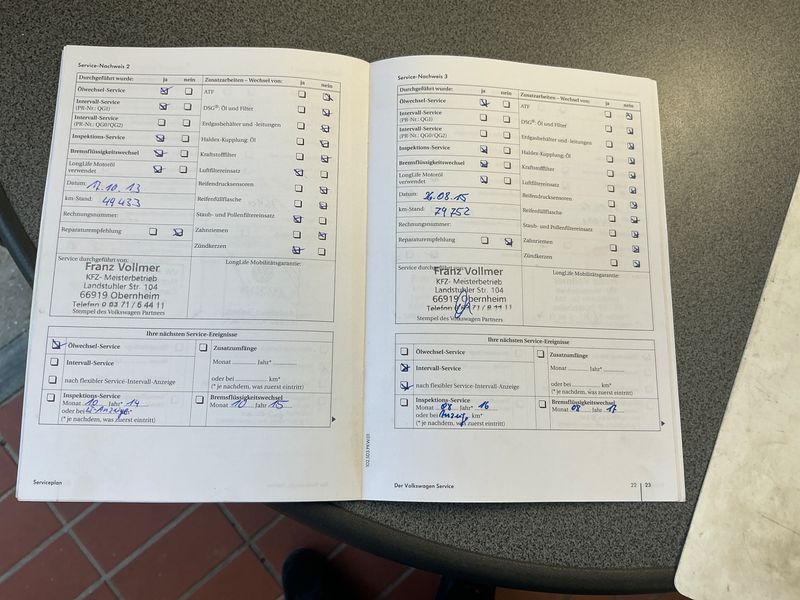 Service-Nachweis 2
Durchgeführt wurde: ja nein Zusatzarbeiten – Wechsel von: ja nein
Ölwechsel-Service
ATF
Intervall-Service
(PR-Nr.: QG1)
DSG®: Öl und Filter
Intervall-Service
(PR-Nr.: QG0/QG2)
Erdgasbehälter und -leitungen
Inspektions-Service
Haldex-Kupplung: Öl
Bremsflüssigkeitswechsel
Kraftstofffilter
LongLife Motoröl
verwendet
Luftfiltereinsatz
Datum: 17.10.13
Reifendrucksensoren
km-Stand: 49433
Reifenfüllflasche
Rechnungsnummer:
Staub- und Pollenfiltereinsatz
Reparaturempfehlung
Zahnriemen
Zündkerzen
Service durchgeführt von:
LongLife Mobilitätsgarantie:
Franz Vollmer
KFZ- Meisterbetrieb
Landstuhler Str. 104
66919 Obernheim
Telefon 0 63 71 / 6 44 11
Stempel des Volkswagen Partners
Ihre nächsten Service-Ereignisse
Ölwechsel-Service
Zusatzumfänge
Intervall-Service
Monat ........ Jahr* ........
nach flexibler Service-Intervall-Anzeige
oder bei ........ km*
(* je nachdem, was zuerst eintritt)
Inspektions-Service
Monat 10 Jahr* 14
oder bei
(* je nachdem, was zuerst eintritt)
Bremsflüssigkeitswechsel
Monat 10 Jahr 15
Serviceplan
Service-Nachweis 3
Durchgeführt wurde: ja nein Zusatzarbeiten – Wechsel von: ja nein
Ölwechsel-Service
ATF
Intervall-Service
(PR-Nr.: QG1)
DSG®: Öl und Filter
Intervall-Service
(PR-Nr.: QG0/QG2)
Erdgasbehälter und -leitungen
Inspektions-Service
Haldex-Kupplung: Öl
Bremsflüssigkeitswechsel
Kraftstofffilter
LongLife Motoröl
verwendet
Luftfiltereinsatz
Datum: 26.08.15
Reifendrucksensoren
km-Stand: 79752
Reifenfüllflasche
Rechnungsnummer:
Staub- und Pollenfiltereinsatz
Reparaturempfehlung
Zahnriemen
Zündkerzen
Service durchgeführt von:
LongLife Mobilitätsgarantie:
Franz Vollmer
KFZ- Meisterbetrieb
Landstuhler Str. 104
66919 Obernheim
Telefon 71 / 6 44 11
Stempel des Volkswagen Partners
Ihre nächsten Service-Ereignisse
Ölwechsel-Service
Zusatzumfänge
Intervall-Service
Monat ........ Jahr* ........
nach flexibler Service-Intervall-Anzeige
oder bei ........ km*
(* je nachdem, was zuerst eintritt)
Inspektions-Service
Monat 08 Jahr* 16
oder bei Anzeige km*
(* je nachdem, was zuerst eintritt)
Bremsflüssigkeitswechsel
Monat 08 Jahr 17
Der Volkswagen Service
22 23